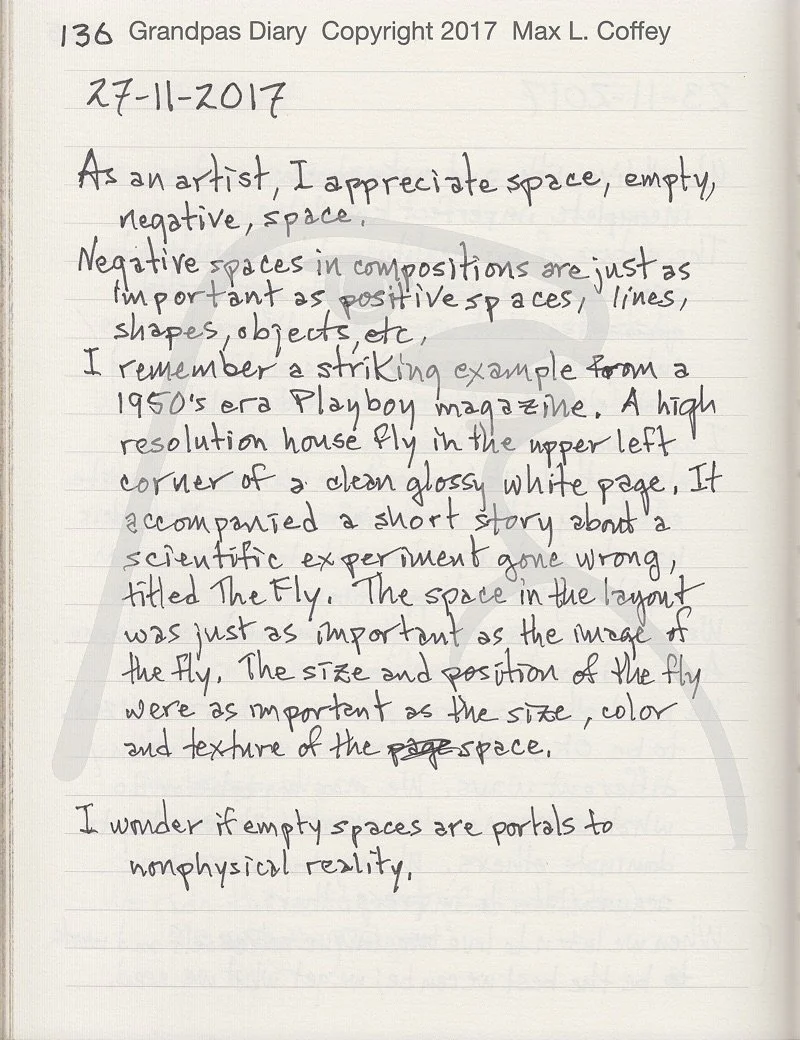 136 Grandpas Diary Copyright 2017 Max L. Coffey
27-11-2017
As an artist, I appreciate space, empty,
negative, space.
Negative spaces in compositions are just as
important as positive spaces, lines,
shapes, objects, etc.
I remember a striking example from a
1950's era Playboy magazine. A high
resolution house fly in the upper left
corner of a clean glossy white page. It
accompanied a short story about a
scientific experiment gone wrong,
titled The Fly. The space in the layout
was just as important as the image of
the fly. The size and position of the fly
were as important as the size, color
and texture of the page space.
I wonder if empty spaces are portals to
nonphysical reality.